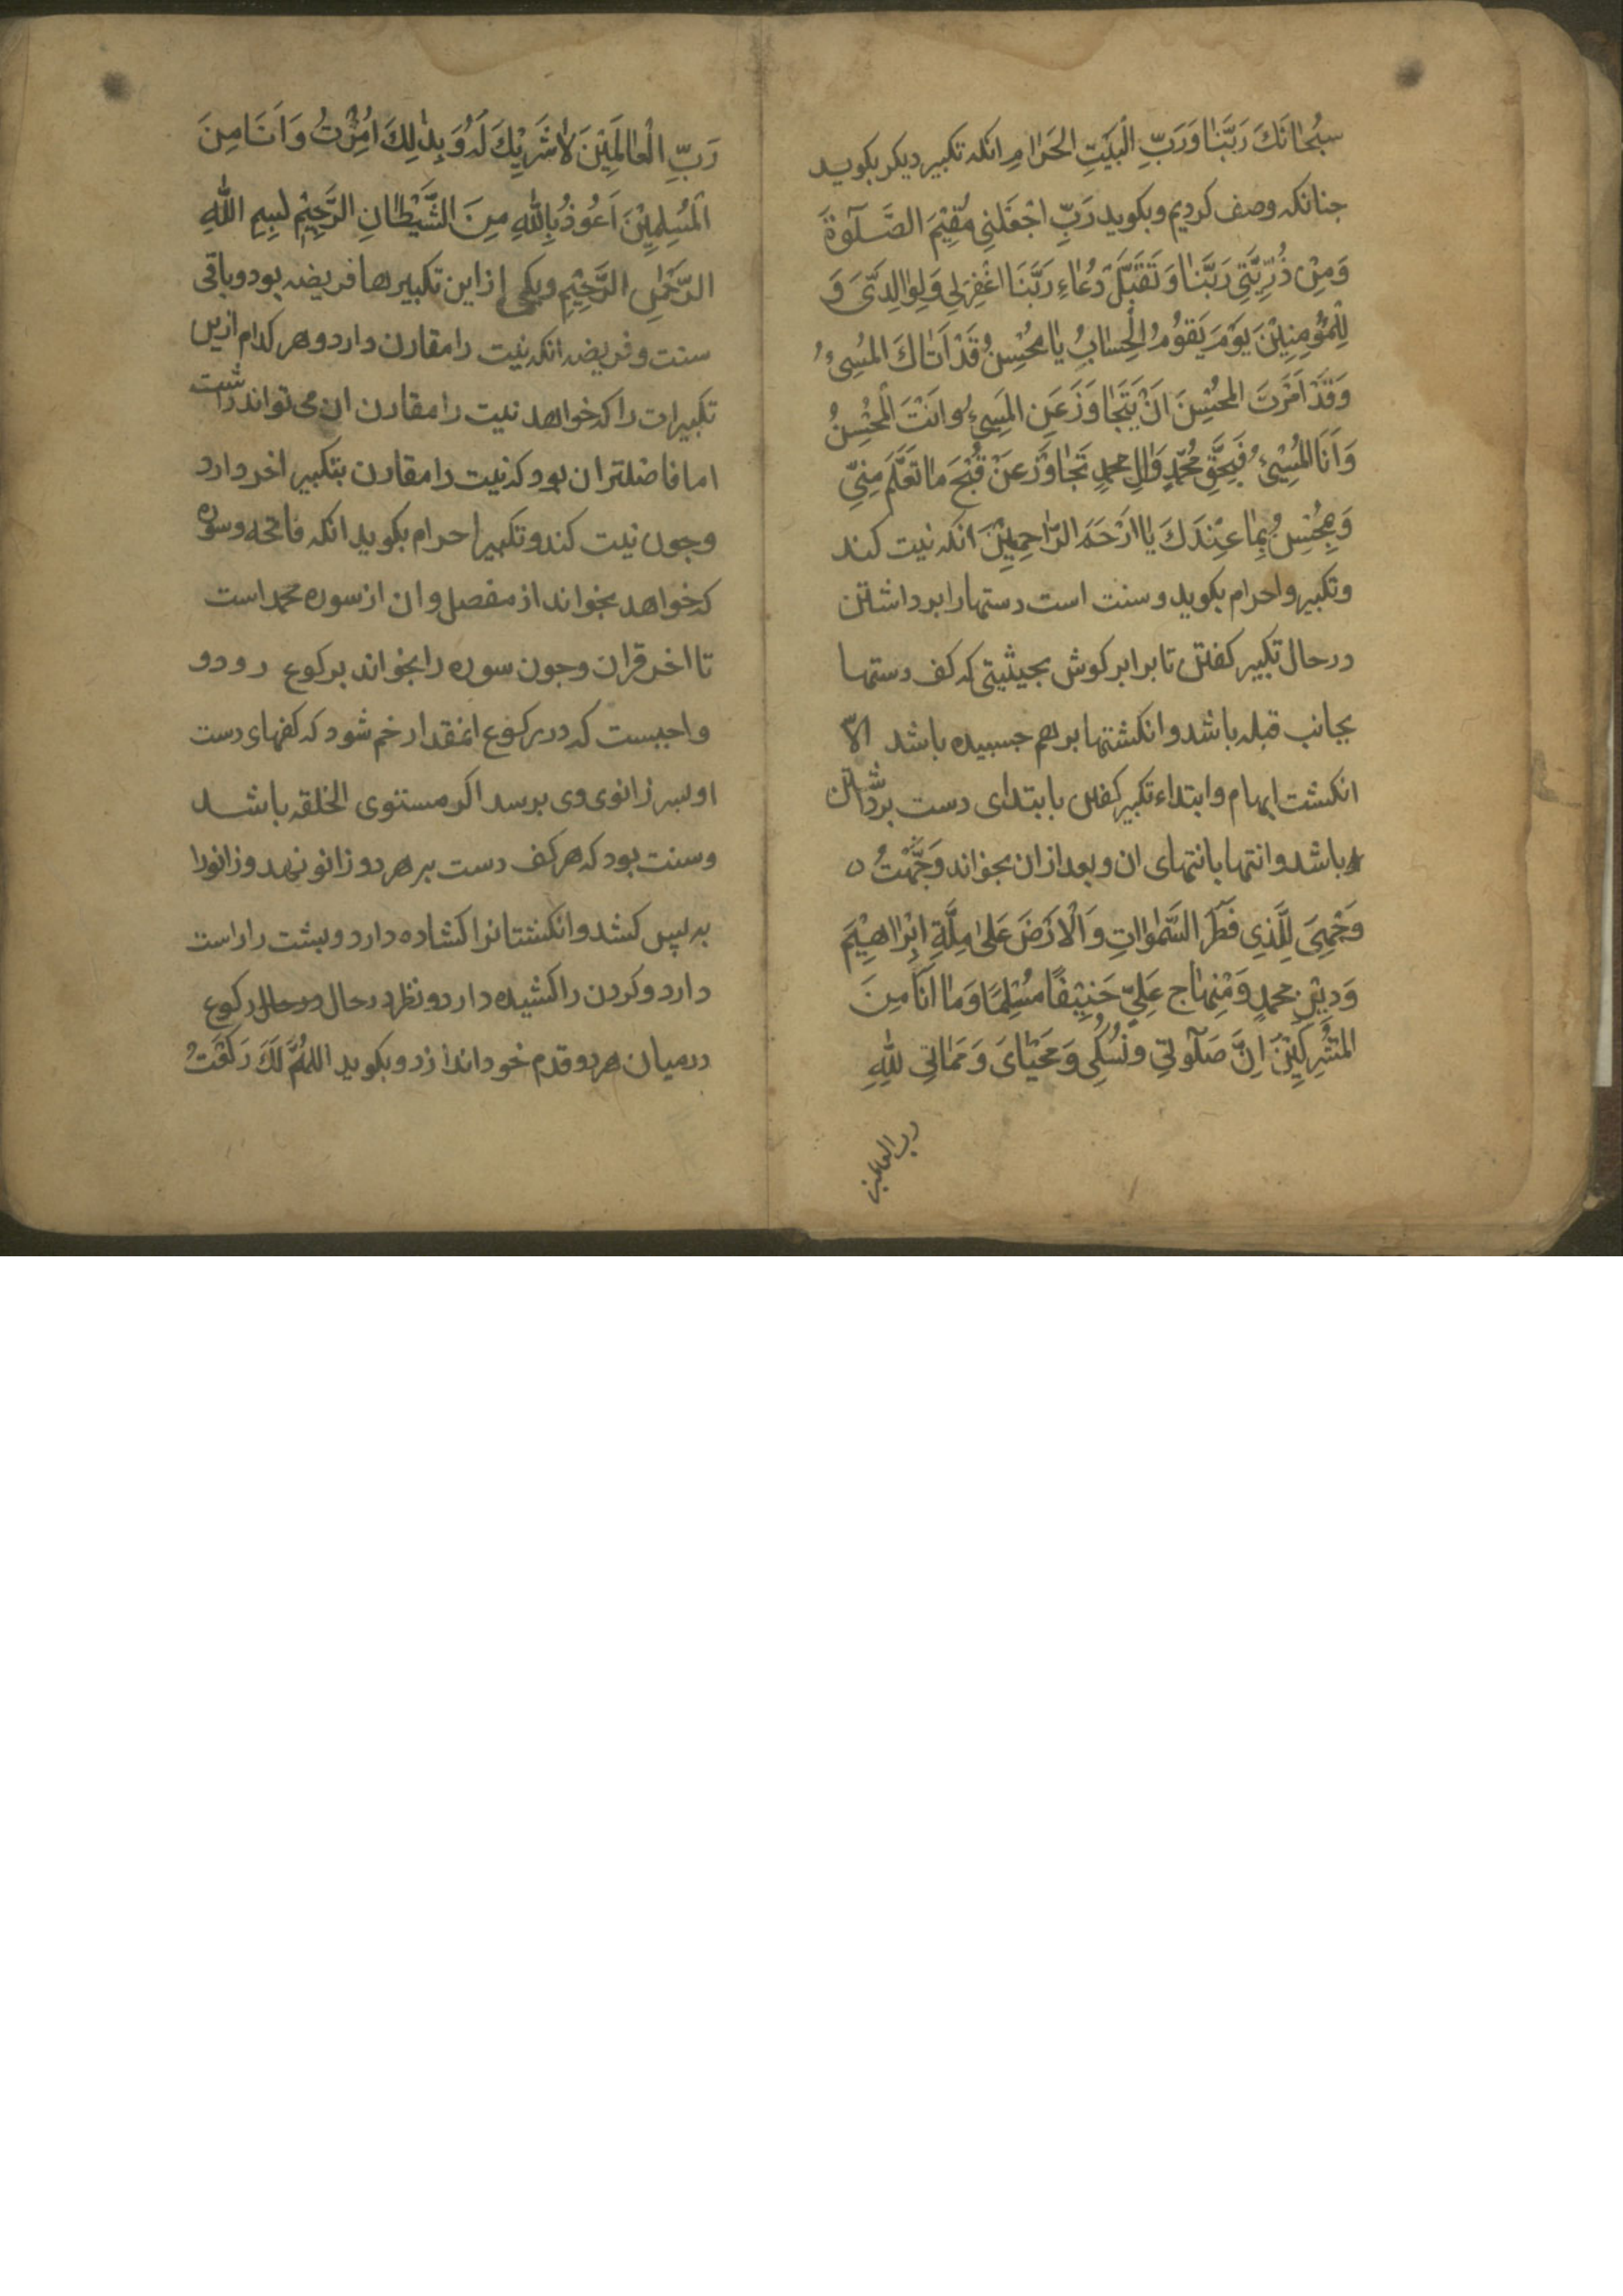 سُبْحَانَكَ رَبَّنَا وَرَبِّ الْبَيْتِ الحَرَامِ انکه تکبیر دیکر بکوید
جنانکه وصف کردیم و بکوید رَبِّ اجْعَلْنِي مُقِيْمَ الصَّلَوٰةَ
وَمِنْ ذُرِّيَّتِي رَبَّنَا وَتَقَبَّلْ دُعَاءِ رَبَّنَا اغْفِرْ لِي وَلِوَالِدَيَّ وَ
لِلْمُؤْمِنِيْنَ يَوْمَ يَقُوْمُ الْحِسَابُ يَا مُحْسِنُ قَدْ اَتَاكَ المُسِيْءُ
وَقَدْ اَمَرْتَ المُحْسِنَ اَنْ يَتَجَاوَزَ عَنِ المُسِيْءِ وَاَنْتَ الْمُحْسِنُ
وَاَنَا المُسِيْءُ فَبِحَقِّ مُحَمَّدٍ وَالِ محمدٍ تَجَاوَزْ عَنْ قُبْحِ مَا تَعْلَمُ مِنِّي
بِمَا عِنْدَكَ يَا اَرْحَمَ الرَّاحِمِيْنَ انکه نیت کند
وتکبیر و احرام بکوید و سنت است دستها را برداشتن
درحال تکبیر کفتن تا برابر کوش بحیثیتی که کف دستها
بجانب قبله باشد و انکشتها برهم جسبیده باشد الّا
انکشت ابهام وابتداء تکبیر کفتن بابتدای دست برداشتن
باشد وانتها بانتهای ان و بعد ازان بخواند وَجَّهْتُ
وَجْهِيَ لِلَّذِي فَطَرَ السَّمٰوَاتِ وَالْاَرْضَ عَلٰى مِلَّةِ اِبْرَاهِيْمَ
وَدِيْنِ محمدٍ وَمِنْهَاجِ عَلِيٍّ حَنِيْفًا مُسْلِمًا وَمَا اَنَا مِنَ
المُشْرِكِيْنَ اِنَّ صَلَوٰتِي وَنُسُكِي وَمَحْيَايَ وَمَمَاتِي لِلّٰهِ
رب العالمین
رَبِّ الْعَالَمِيْنَ لَا شَرِيْكَ لَهُ وَبِذٰلِكَ اُمِرْتُ وَاَنَا مِنَ
الْمُسْلِمِيْنَ اَعُوْذُ بِاللّٰهِ مِنَ الشَّيْطَانِ الرَّجِيْمِ بِسِمِ اللّٰهِ
الرَّحْمٰنِ الرَّحِيْمِ ویکی از این تکبیرها فریضه بود و باقی
سنت و فریضه انکه نیت را مقارن دارد و هر کدام ازین
تکبیرات را که خواهد نیت را مقارن ان می تواند داشت
اما فاضلتر ان بود که نیت را مقارن بتکبیر اخر دارد
وجون نیت کند و تکبیر احرام بکوید انکه فاتحه و سوره
که خواهد بخواند از مفصل و ان از سوره محمد است
تا اخر قران وجون سوره را بخواند برکوع رود و
واجبست که در رکوع انمقدار خم شود که کفهای دست
او بسر زانوی وی برسد اکر مستوی الخلقه باشد
وسنت بود که هر کف دست بر هر دو زانو نهد و زانو را
به پس کشد و انکشتانرا کشاده دارد و بشت را راست
دارد و کردن را کشیده دارد و نظر درحال درحال رکوع
درمیان هر دو قدم خود اندازد و بکوید اللّٰهُمَّ لَكَ رَكَعْتُ